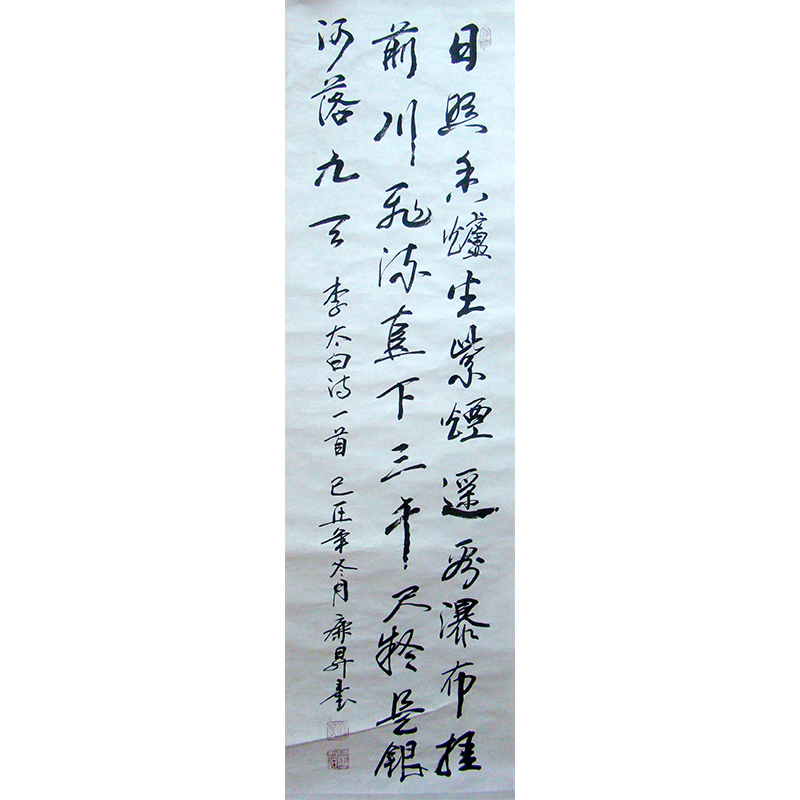 日照香爐生紫煙遥看瀑布挂
前川飛流直下三千尺疑是銀
河落九天
李太白诗一首 己丑年冬月 廉昇书